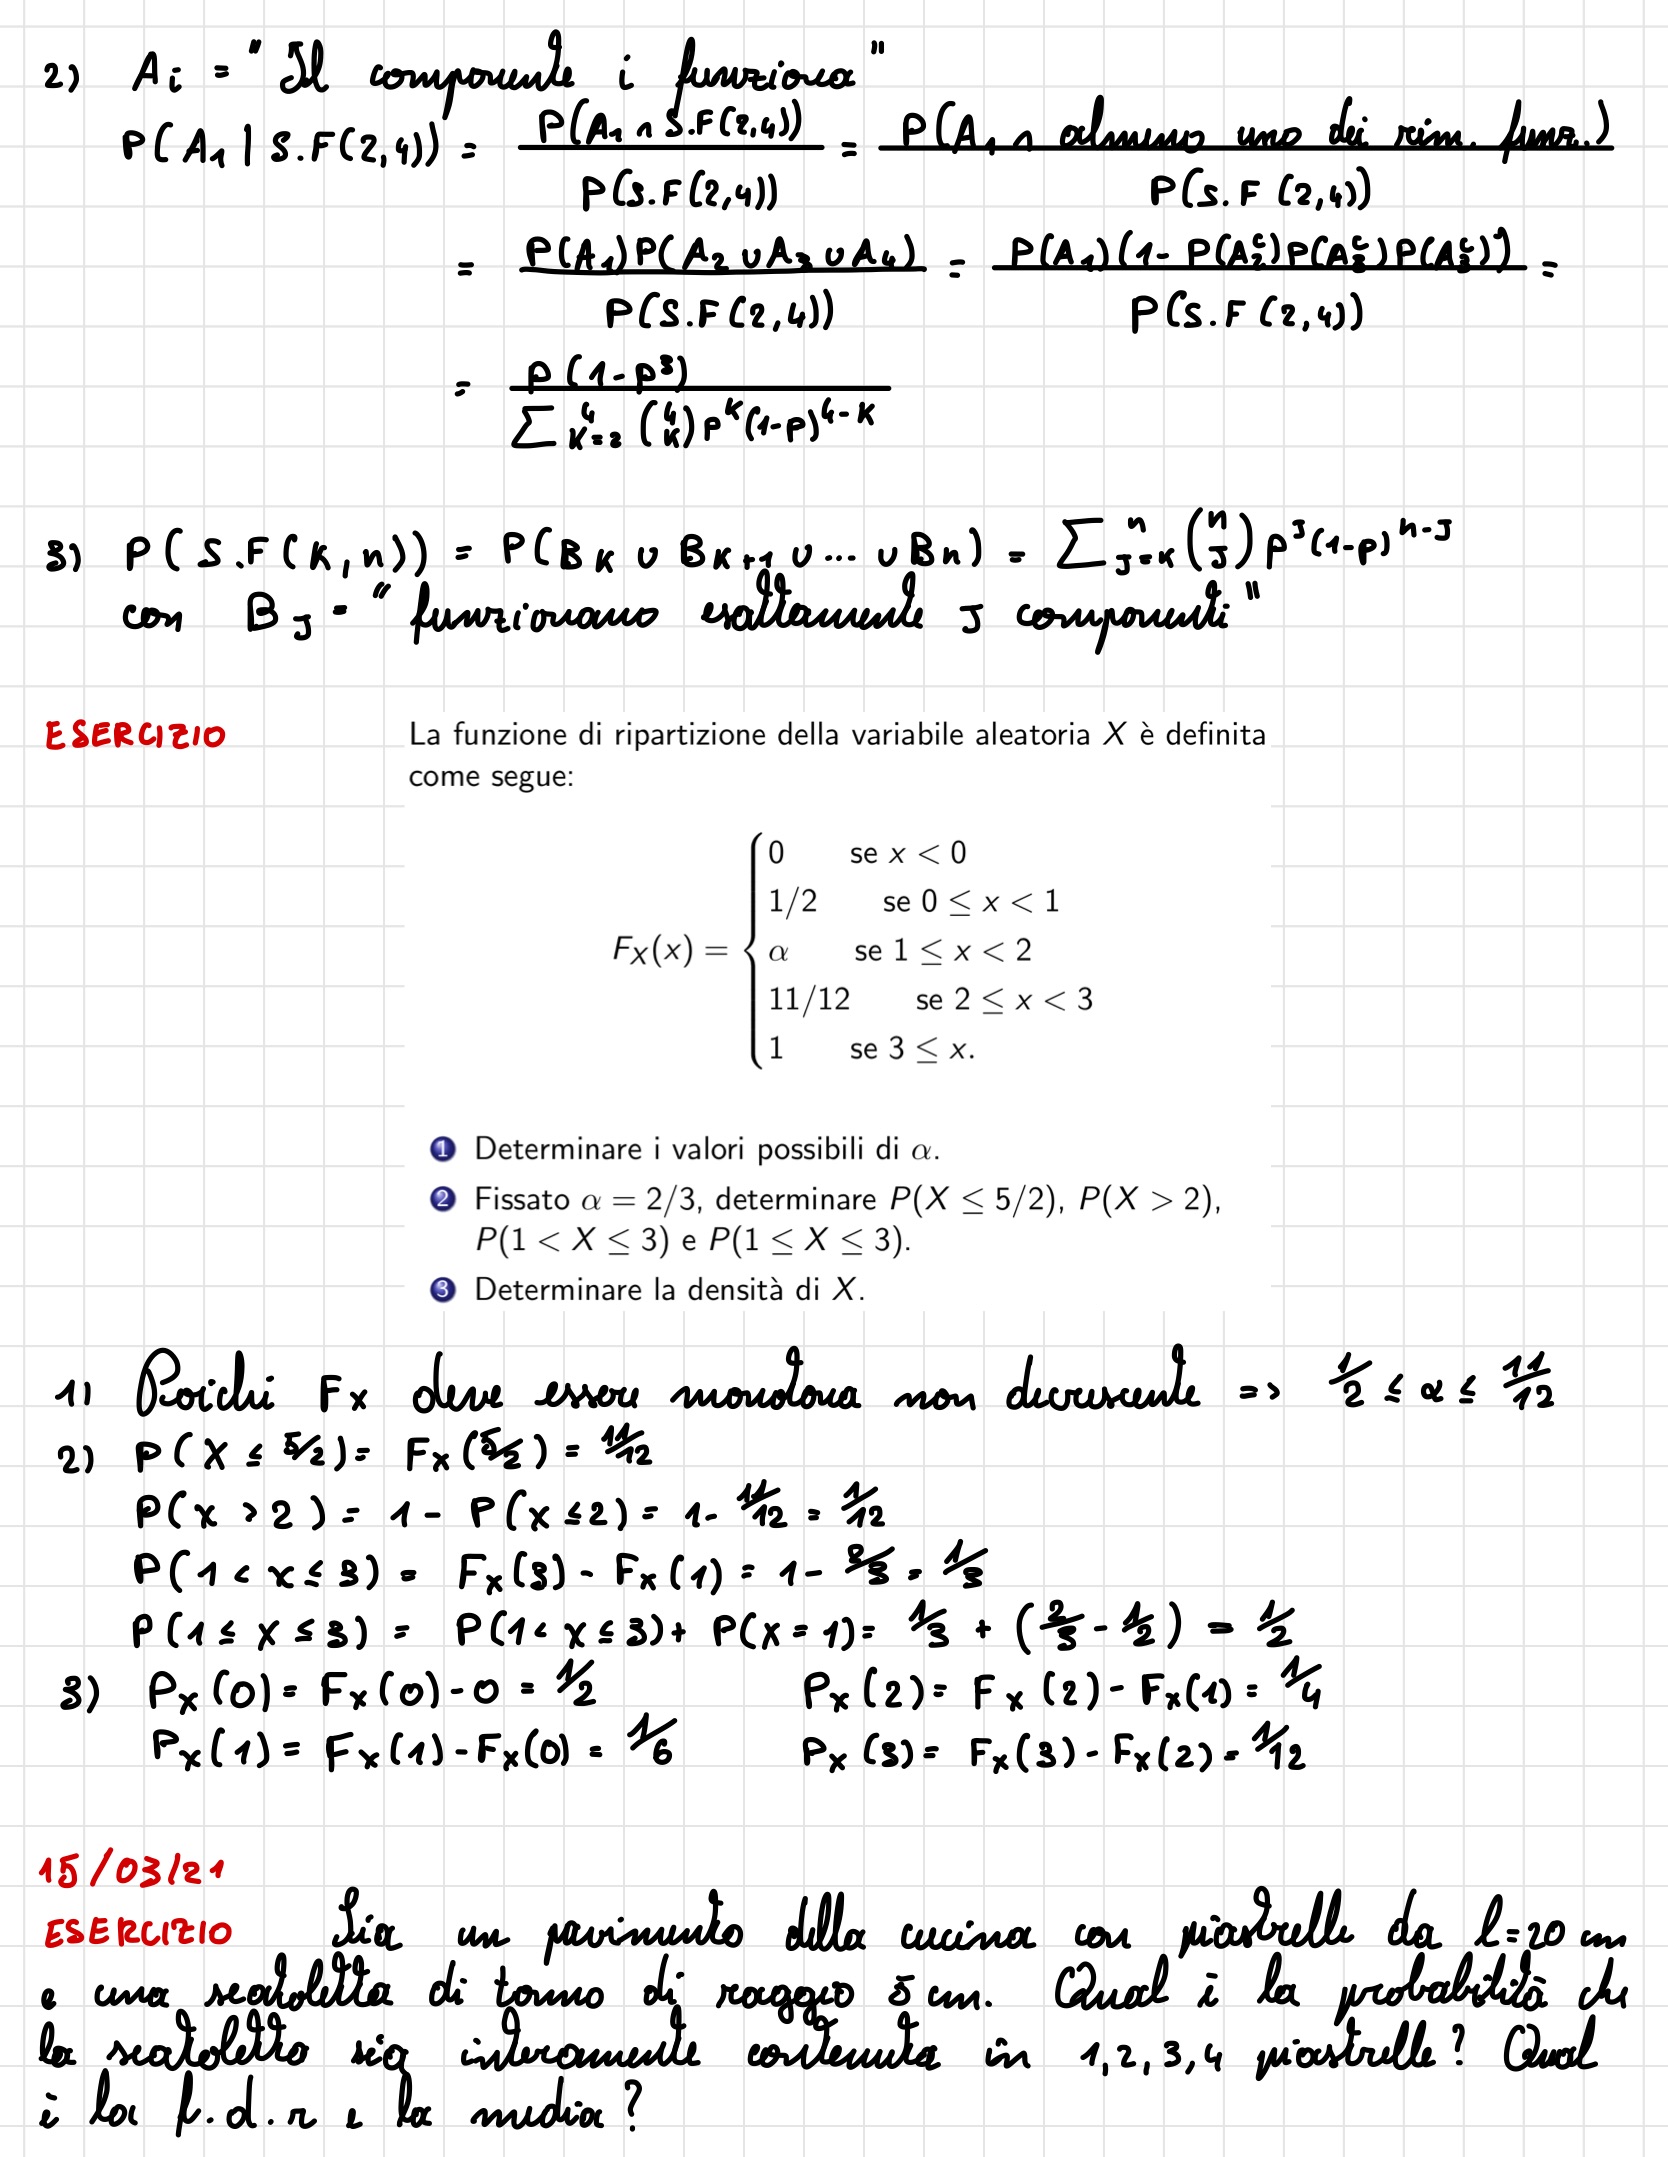 2) Ai = "Il componente i funziona"
P(A1 | S.F(2,4)) = P(A1 ∩ S.F(2,4)) / P(S.F(2,4)) = P(A1 ∩ almeno uno dei rim. funz.) / P(S.F(2,4))
= P(A1)P(A2 ∪ A3 ∪ A4) / P(S.F(2,4)) = P(A1)(1-P(A2^c)P(A3^c)P(A3^c)) / P(S.F(2,4)) =
= p(1-p^3) / ∑_{K=2}^{4} (4 K) p^K (1-p)^{4-K}
3) P(S.F(K,n)) = P(BK ∪ BK+1 ∪ ... ∪ Bn) = ∑_{J=K}^{n} (n J) p^J (1-p)^{n-J}
con BJ = "funzionano esattamente J componenti"
ESERCIZIO
La funzione di ripartizione della variabile aleatoria X è definita
come segue:
0 se x < 0
1/2 se 0 ≤ x < 1
FX(x) = { α se 1 ≤ x < 2
11/12 se 2 ≤ x < 3
1 se 3 ≤ x.
1 Determinare i valori possibili di α.
2 Fissato α = 2/3, determinare P(X ≤ 5/2), P(X > 2),
P(1 < X ≤ 3) e P(1 ≤ X ≤ 3).
3 Determinare la densità di X.
1) Poichè Fx deve essere monotona non decrescente => 1/2 ≤ α ≤ 11/12
2) P(X ≤ 5/2) = Fx(5/2) = 11/12
P(x > 2) = 1 - P(x ≤ 2) = 1 - 11/12 = 1/12
P(1 < x ≤ 3) = Fx(3) - Fx(1) = 1 - 2/3 = 1/3
P(1 ≤ x ≤ 3) = P(1 < x ≤ 3) + P(x = 1) = 1/3 + (2/3 - 1/2) = 1/2
3) Px(0) = Fx(0) - 0 = 1/2 Px(2) = Fx(2) - Fx(1) = 1/4
Px(1) = Fx(1) - Fx(0) = 1/6 Px(3) = Fx(3) - Fx(2) = 1/12
15/03/21
ESERCIZIO Sia un pavimento della cucina con piastrelle da l=20 cm
e una scatoletta di tonno di raggio 5 cm. Qual è la probabilità che
la scatoletta sia interamente contenuta in 1,2,3,4 piastrelle? Qual
è la f.d.r e la media?